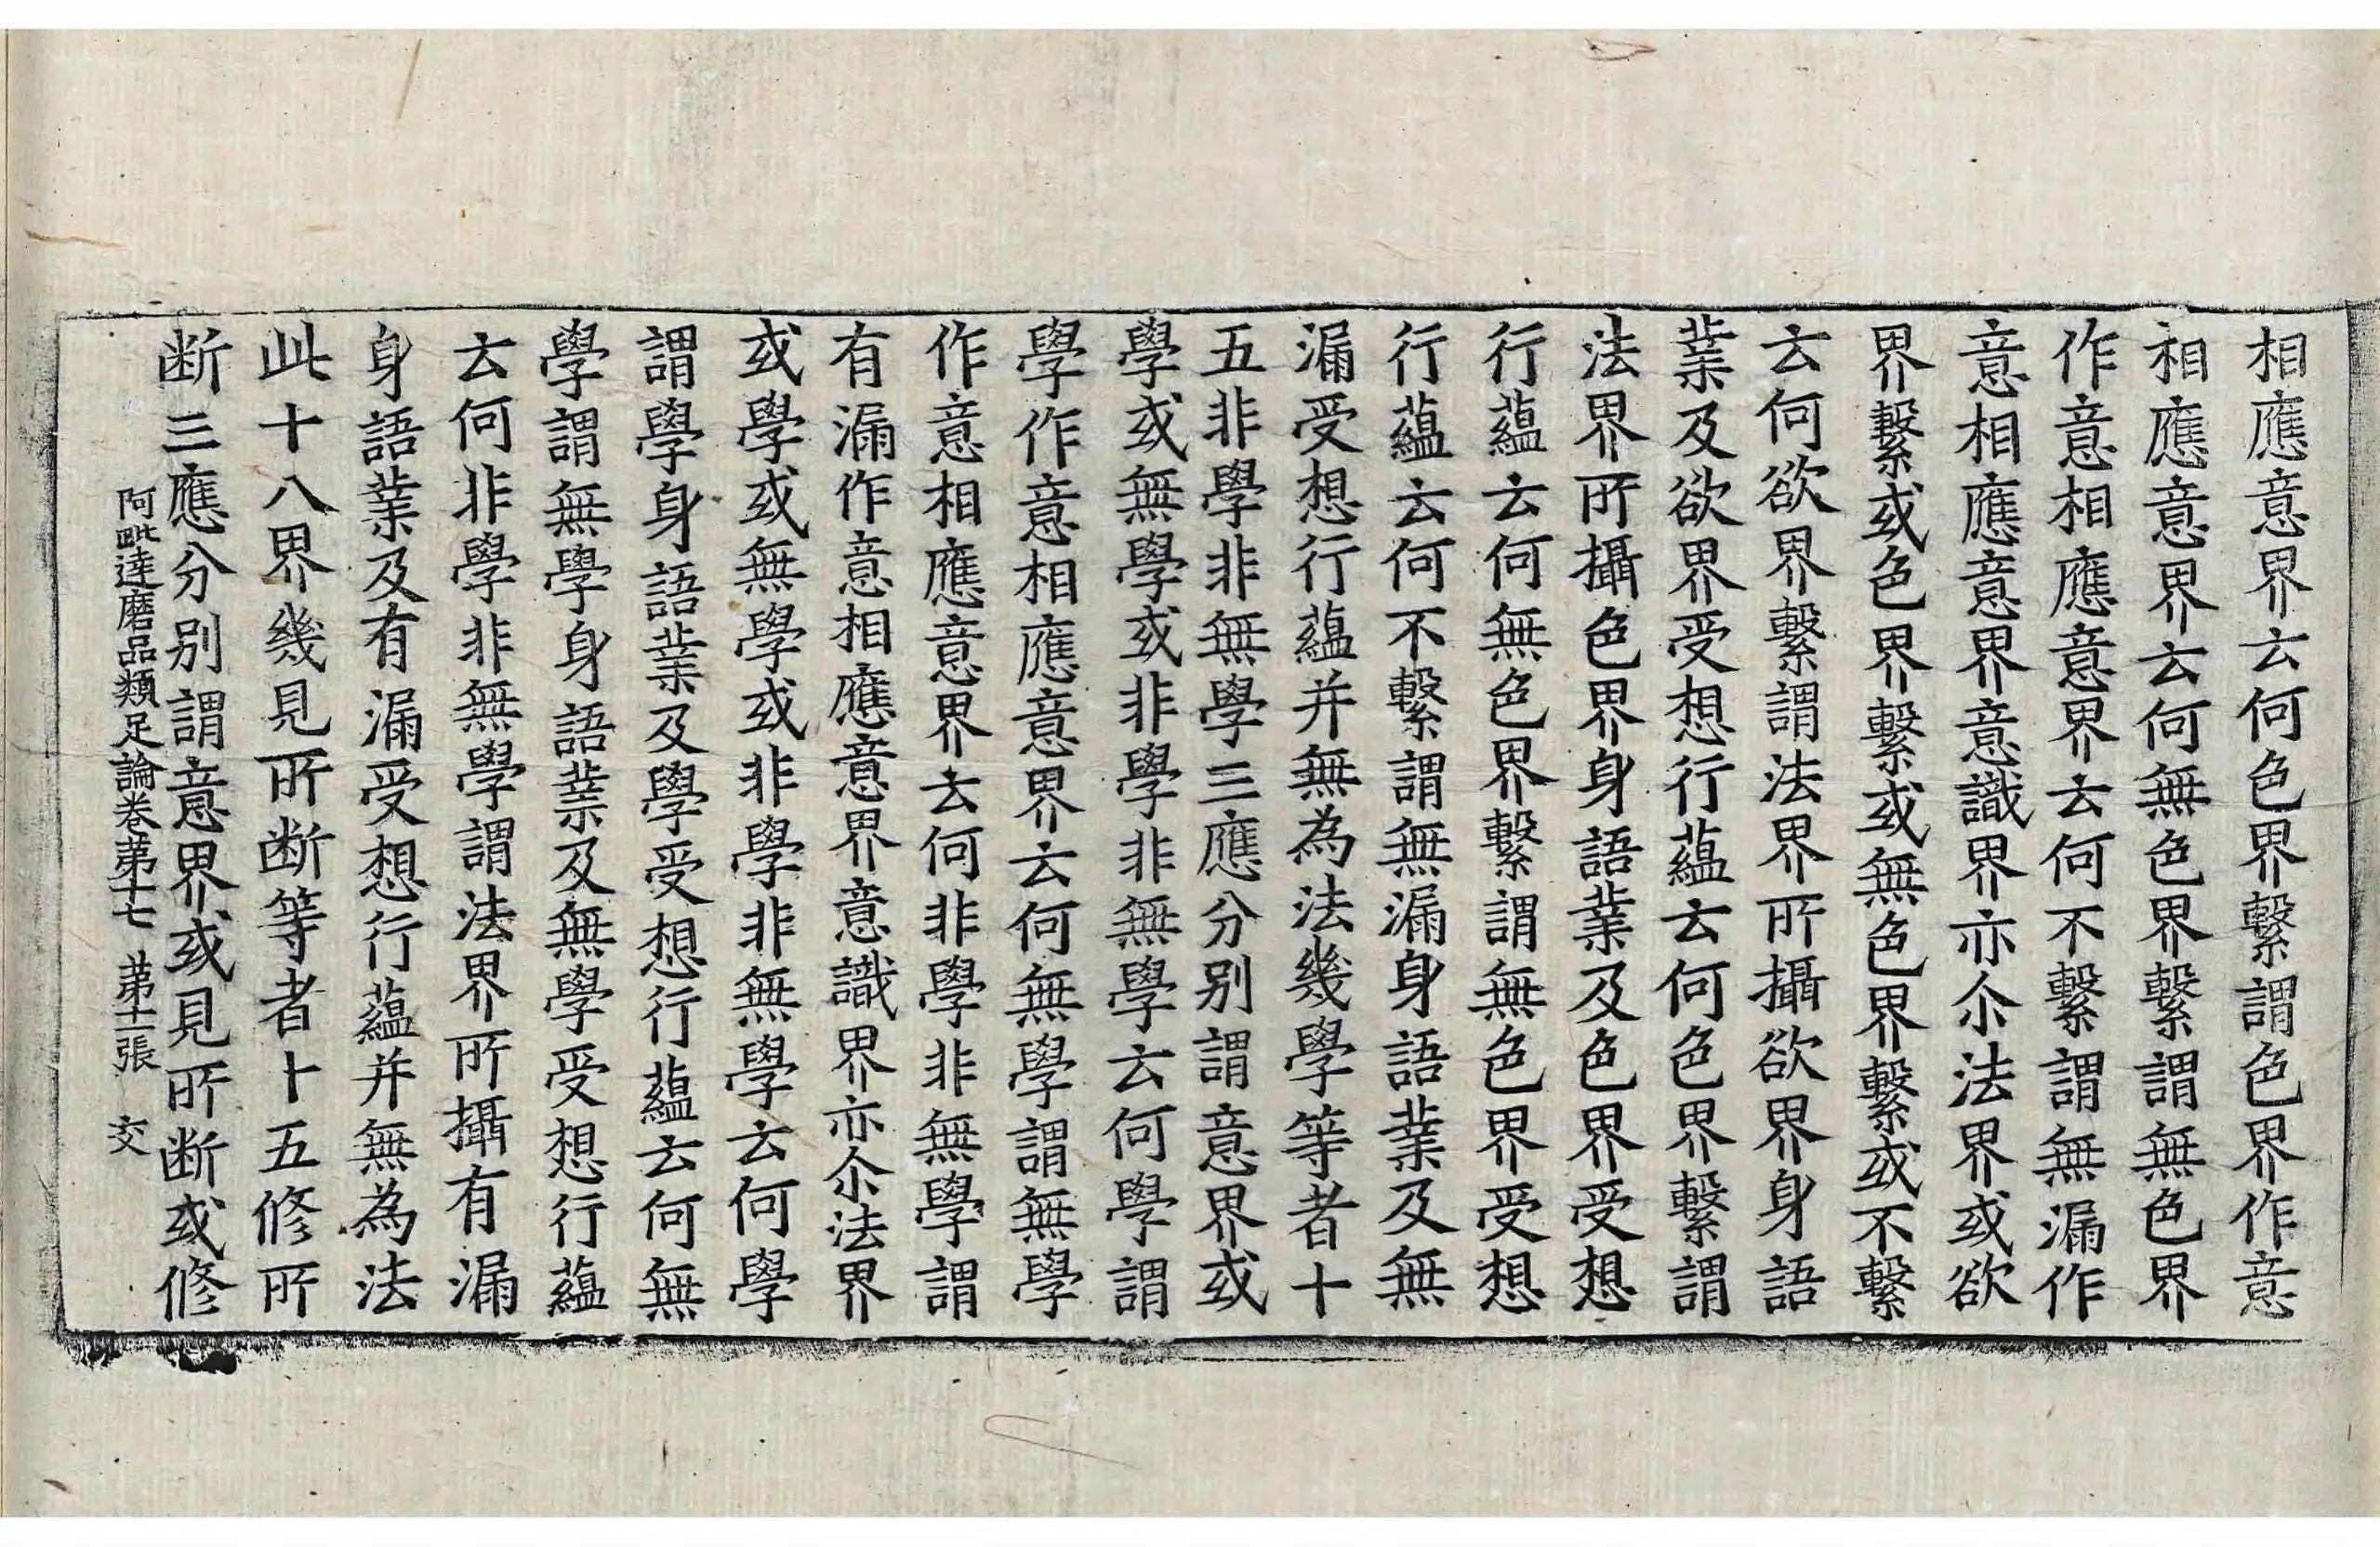 相應意界云何色界繫謂色界作意
相應意界云何無色界繫謂無色界
作意相應意界云何不繫謂無漏作
意相應意界意識界亦尒法界或欲
界繫或色界繫或無色界繫或不繫
云何欲界繫謂法界所攝欲界身語
業及欲界受想行蘊云何色界繫謂
法界所攝色界身語業及色界受想
行蘊云何無色界繫謂無色界受想
行蘊云何不繫謂無漏身語業及無
漏受想行蘊并無為法幾學等者十
五非學非無學三應分别謂意界或
學或無學或非學非無學云何學謂
學作意相應意界云何無學謂無學
作意相應意界云何非學非無學謂
有漏作意相應意界意識界亦尒法界
或學或無學或非學非無學云何學
謂學身語業及學受想行蘊云何無
學謂無學身語業及無學受想行蘊
云何非學非無學謂法界所攝有漏
身語業及有漏受想行蘊并無為法
此十八界幾見所断等者十五修所
断三應分别謂意界或見所断或修
阿毗達磨品類足論卷苐十七 苐十二張 交